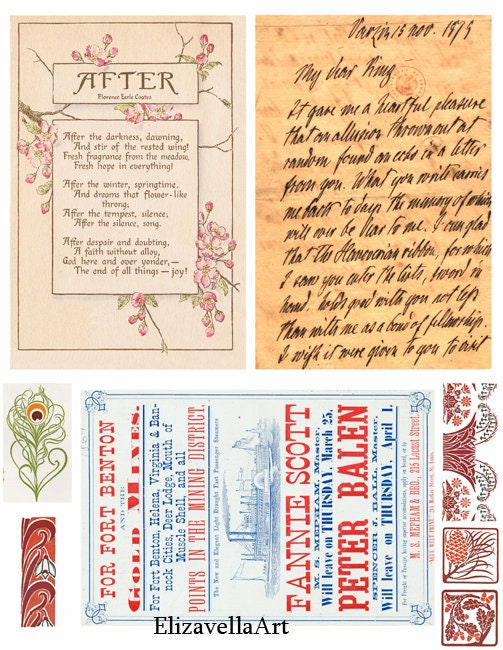 AFTER
Florence Earle Coates
After the darkness, dawning,
And stir of the rested wing!
Fresh fragrance from the meadow,
Fresh hope in everything!
After the winter, springtime,
And dreams that flower-like
throng;
After the tempest, silence;
After the silence, song.
After despair and doubting,
A faith without alloy,
God here and over yonder,—
The end of all things — joy!
Varzin 15 nov. 187
My dear King
It gave me a heartful pleasure
that an allusion thrown out at
random found an echo in a letter
from you. What you write carries
me back to days the memory of which
will ever be dear to me. I am glad
that the Hanoverian ribbon, for which
I saw you enter the lists, sword in
hand, holds good with you not less
than with me as a bond of fellowship.
I wish it were given to you to visit
FOR FORT BENTON
AND THE
GOLD MINES.
For Fort Benton, Helena, Virginia & Ban-
nock Cities, Deer Lodge, Mouth of
Muscle Shell, and all
POINTS IN THE MINING DISTRICT
The New and Elegant Light Draught Fast Passenger Steamers
FANNIE SCOTT
M. S. MEPHAM, Master,
Will leave on THURSDAY, March 25.
PETER BALEN
SPENCER J. BALL, Master,
Will leave on THURSDAY, April 1.
For Freight or Passage, having superior accommodations, apply on board, or to
M. S. MEPHAM & BRO., 215 Locust Street.
ElizavellaArt